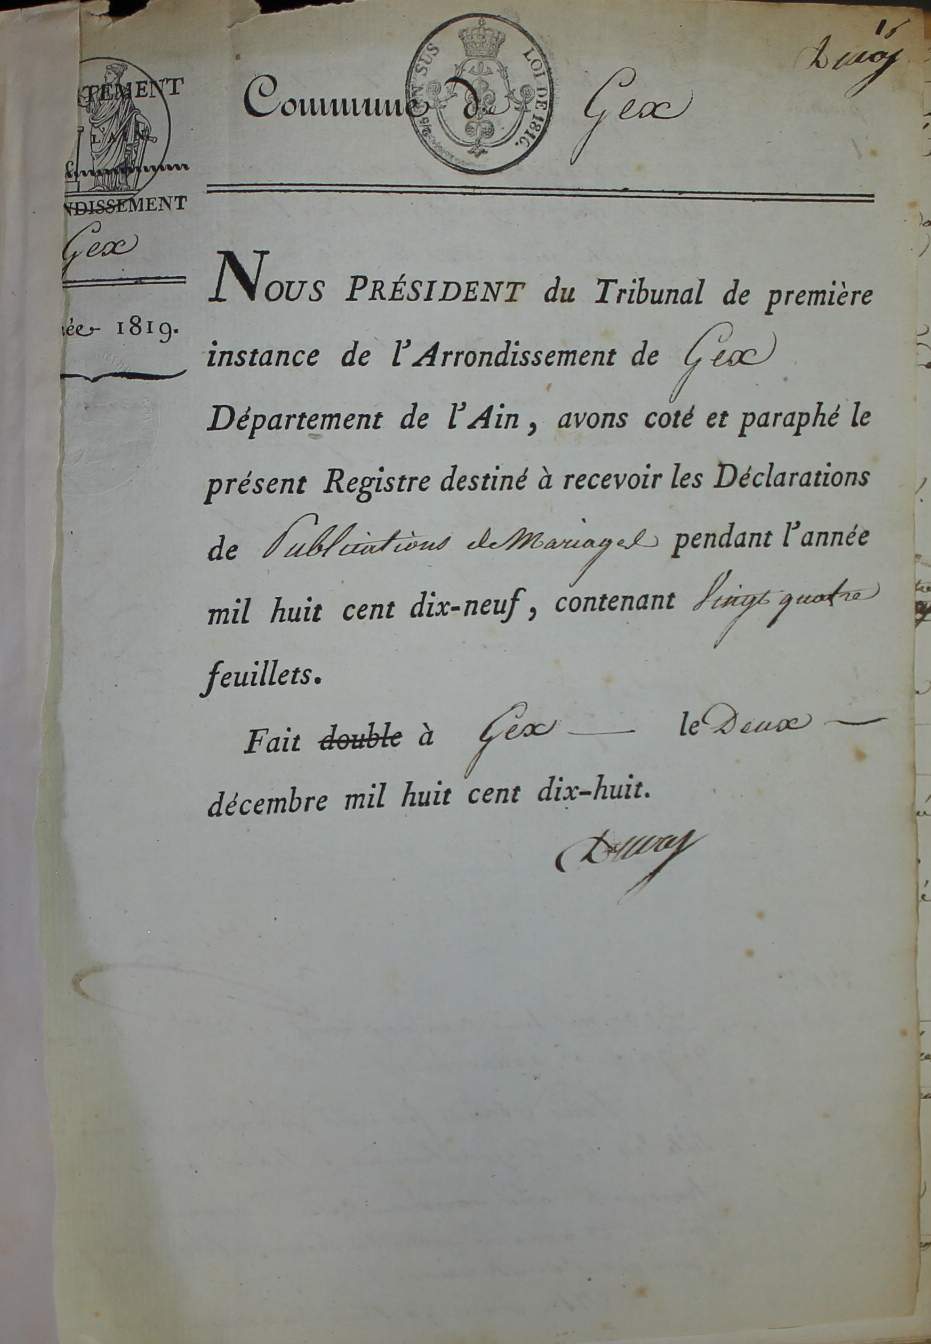 Commune de Gex
EN SUS LOI DE 1816.
TEMENT
NDISSEMENT
Gex
ée 1819.
NOUS PRÉSIDENT du Tribunal de première
instance de l'Arrondissement de Gex
Département de l'Ain, avons coté et paraphé le
présent Registre destiné à recevoir les Déclarations
de Publications de Mariages pendant l'année
mil huit cent dix-neuf, contenant Vingt quatre
feuillets.
Fait double à Gex — le Deux —
décembre mil huit cent dix-huit.